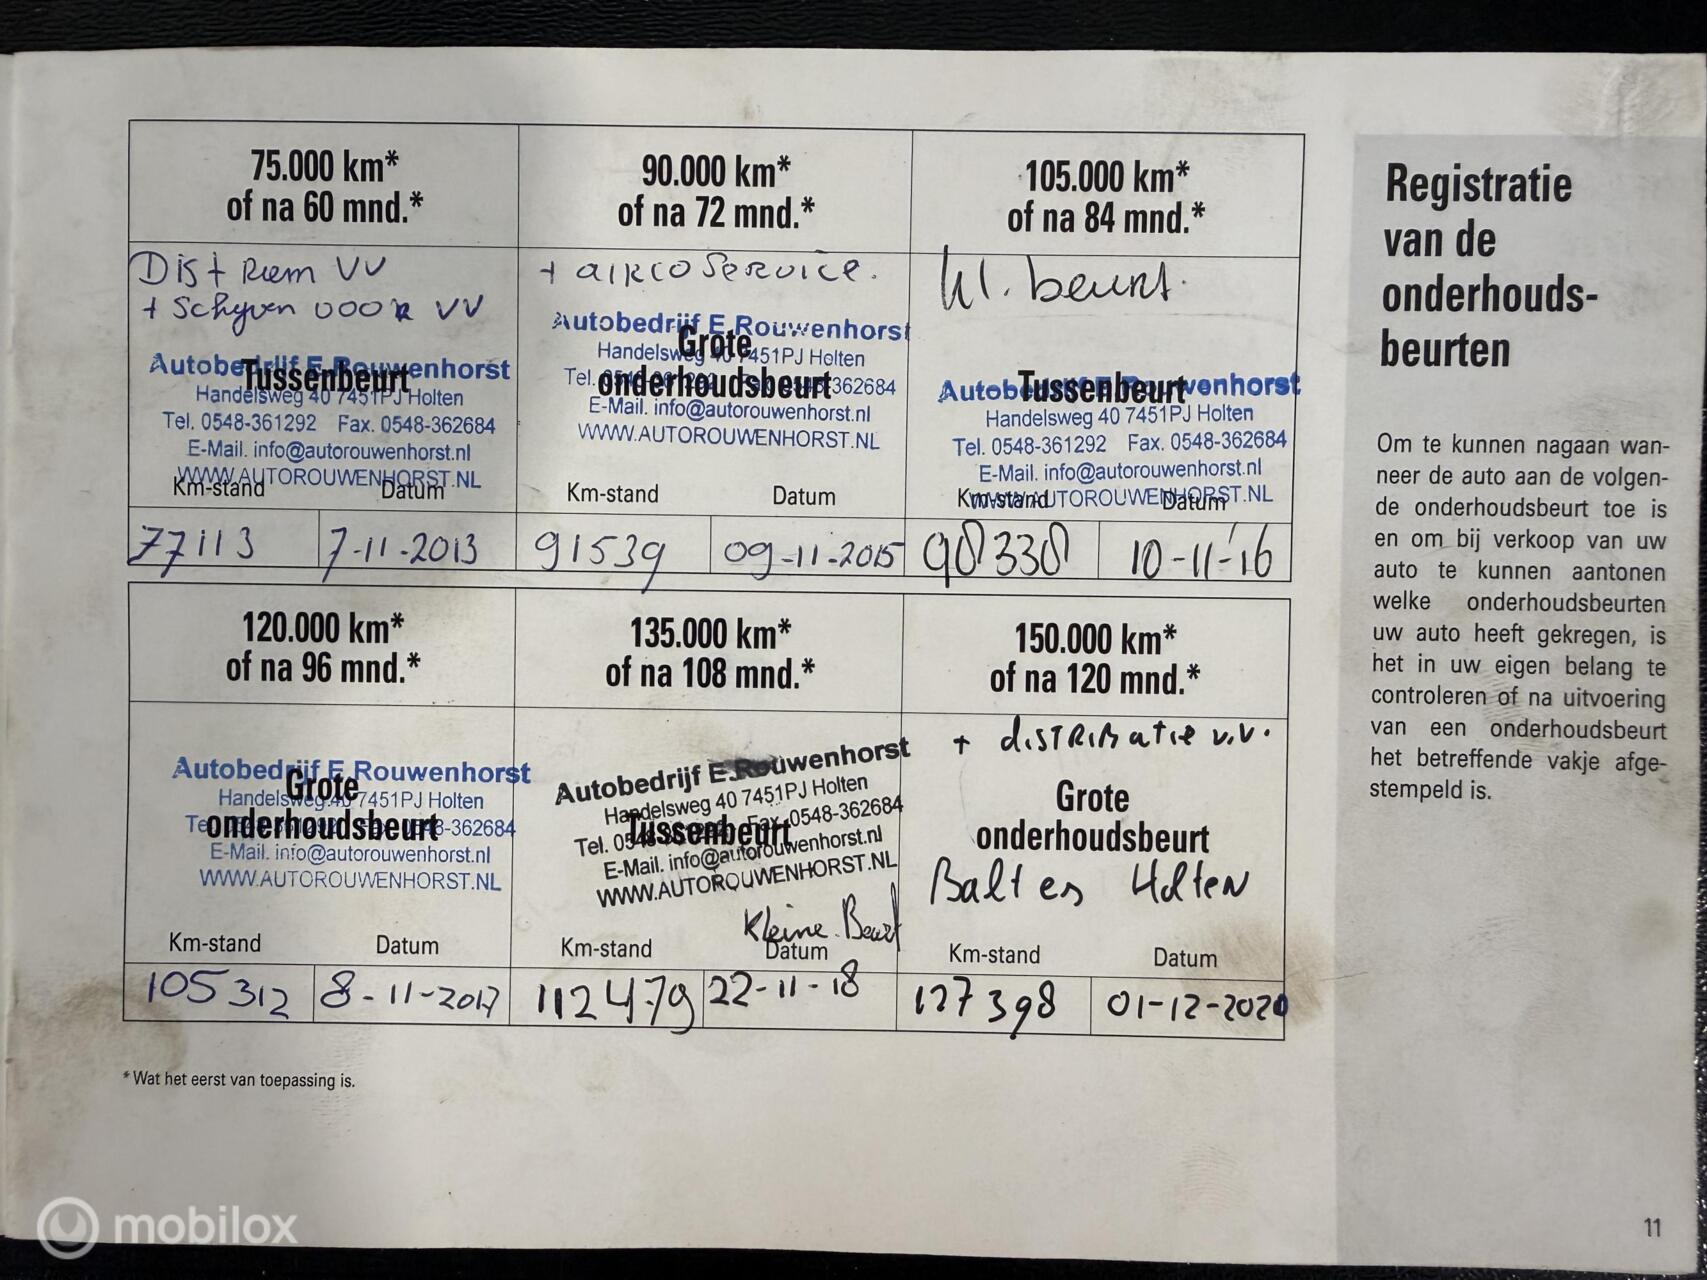 75.000 km*
of na 60 mnd.*
Dist Riem VV
+ Schyven VOOR VV
Autobedrijf E.Rouwenhorst
Tussenbeurt
Handelsweg 40 7451PJ Holten
Tel. 0548-361292 Fax. 0548-362684
E-Mail. info@autorouwenhorst.nl
WWW.AUTOROUWENHORST.NL
Km-stand Datum
77113 7-11-2013
90.000 km*
of na 72 mnd.*
+ aircoservice.
Autobedrijf E.Rouwenhorst
Grote
Handelsweg 40 7451PJ Holten
onderhoudsbeurt
Tel. 0548-361292 Fax. 0548-362684
E-Mail. info@autorouwenhorst.nl
WWW.AUTOROUWENHORST.NL
Km-stand Datum
91539 09-11-2015
105.000 km*
of na 84 mnd.*
kl. beurt.
Autobedrijf E.Rouwenhorst
Tussenbeurt
Handelsweg 40 7451PJ Holten
Tel. 0548-361292 Fax. 0548-362684
E-Mail. info@autorouwenhorst.nl
WWW.AUTOROUWENHORST.NL
Km-stand Datum
98338 10-11-'16
120.000 km*
of na 96 mnd.*
Autobedrijf E.Rouwenhorst
Grote
Handelsweg 40 7451PJ Holten
onderhoudsbeurt
Tel. 0548-361292 Fax. 0548-362684
E-Mail. info@autorouwenhorst.nl
WWW.AUTOROUWENHORST.NL
Km-stand Datum
105312 8-11-2017
135.000 km*
of na 108 mnd.*
Autobedrijf E.Rouwenhorst
Handelsweg 40 7451PJ Holten
Tussenbeurt
Tel. 0548-361292 Fax. 0548-362684
E-Mail. info@autorouwenhorst.nl
WWW.AUTOROUWENHORST.NL
Kleine Beurt
Km-stand Datum
112479 22-11-18
150.000 km*
of na 120 mnd.*
+ distributie v.v.
Grote
onderhoudsbeurt
Baltes Holten
Km-stand Datum
127398 01-12-2020
* Wat het eerst van toepassing is.
Registratie
van de
onderhouds-
beurten
Om te kunnen nagaan wan-
neer de auto aan de volgen-
de onderhoudsbeurt toe is
en om bij verkoop van uw
auto te kunnen aantonen
welke onderhoudsbeurten
uw auto heeft gekregen, is
het in uw eigen belang te
controleren of na uitvoering
van een onderhoudsbeurt
het betreffende vakje afge-
stempeld is.
11
mobilox